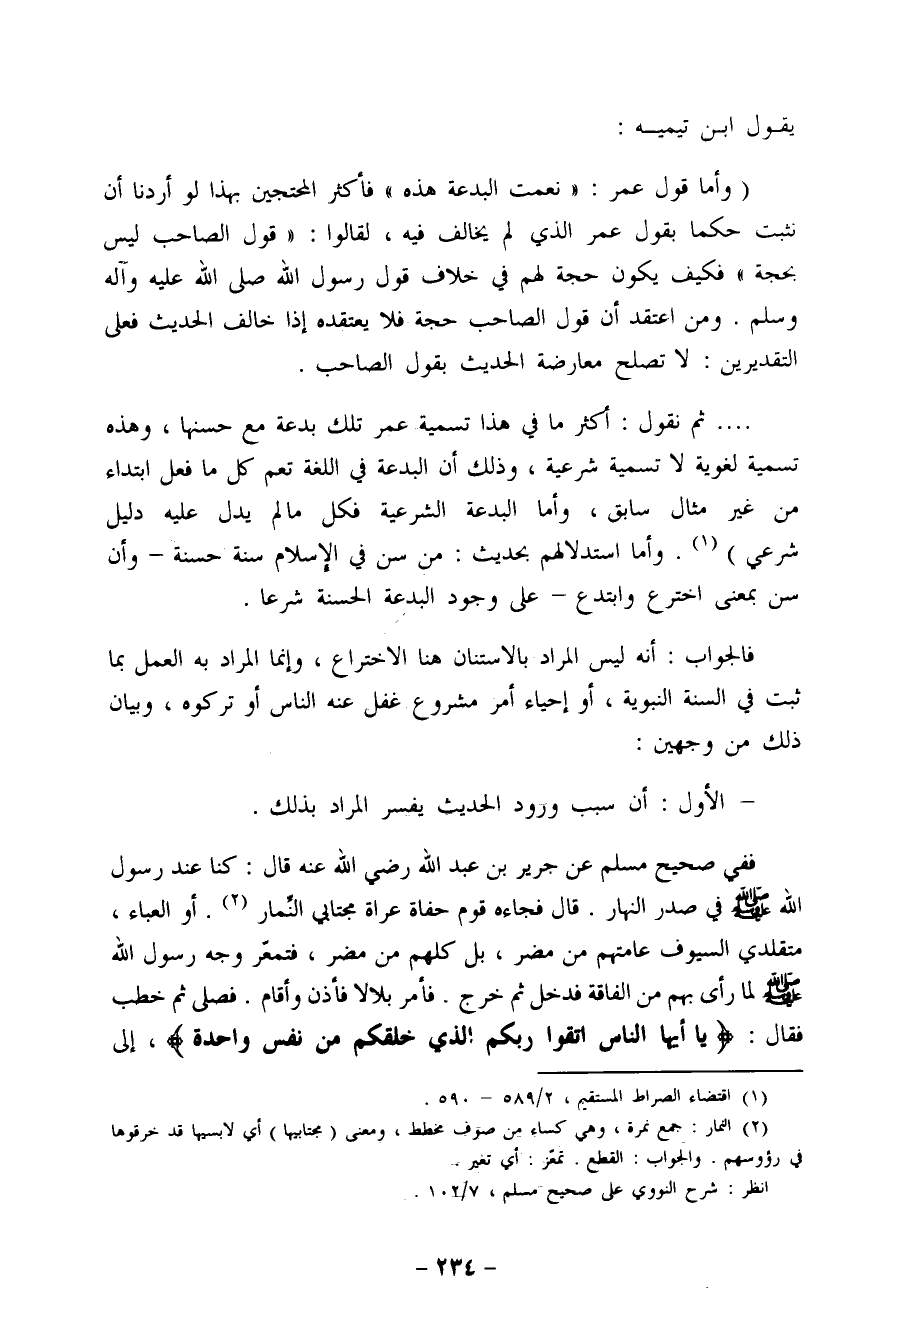 يقـول ابـن تيميـــه :
( وأما قول عمر : « نعمت البدعة هذه » فأكثر المحتجين بهذا لو أردنا أن
نثبت حكما بقول عمر الذي لم يخالف فيه ، لقالوا : « قول الصاحب ليس
بحجة » فكيف يكون حجة لهم في خلاف قول رسول الله صلى الله عليه وآله
وسلم . ومن اعتقد أن قول الصاحب حجة فلا يعتقده إذا خالف الحديث فعلى
التقديرين : لا تصلح معارضة الحديث بقول الصاحب .
.... ثم نقول : أكثر ما في هذا تسمية عمر تلك بدعة مع حسنها ، وهذه
تسمية لغوية لا تسمية شرعية ، وذلك أن البدعة في اللغة تعم كل ما فعل ابتداء
من غير مثال سابق ، وأما البدعة الشرعية فكل مالم يدل عليه دليل
شرعي ) (١) . وأما استدلالهم بحديث : من سن في الإسلام سنة حسنة – وأن
سن بمعنى اخترع وابتدع – على وجود البدعة الحسنة شرعا .
فالجواب : أنه ليس المراد بالاستنان هنا الاختراع ، وإنما المراد به العمل بما
ثبت في السنة النبوية ، أو إحياء أمر مشروع غفل عنه الناس أو تركوه ، وبيان
ذلك من وجهين :
– الأول : أن سبب ورود الحديث يفسر المراد بذلك .
ففي صحيح مسلم عن جرير بن عبد الله رضي الله عنه قال : كنا عند رسول
الله ﷺ في صدر النهار . قال فجاءه قوم حفاة عراة مجتابي النِّمار (٢) . أو العباء ،
متقلدي السيوف عامتهم من مضر ، بل كلهم من مضر ، فتمعّر وجه رسول الله
ﷺ لما رأى بهم من الفاقة فدخل ثم خرج . فأمر بلالا فأذن وأقام . فصلى ثم خطب
فقال : ﴿ يا أيها الناس اتقوا ربكم الذي خلقكم من نفس واحدة ﴾ ، إلى
(١) اقتضاء الصراط المستقيم ، ٥٨٩/٢ – ٥٩٠ .
(٢) النمار : جمع نمرة ، وهي كساء من صوف مخطط ، ومعنى ( مجتابيها ) أي لابسيها قد خرقوها
في رؤوسهم . والجواب : القطع . تمعّر : أي تغير .
انظر : شرح النووي على صحيح مسلم ، ١٠٢/٧ .
– ٢٣٤ –